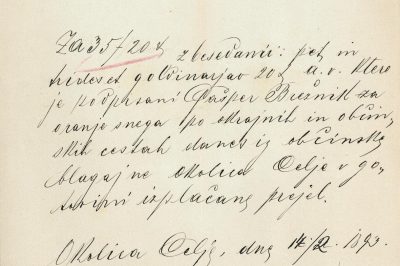 Za 35 f 20 x z besedami: pet in
trideset goldinarjav 20 x a. v. ktere
je podpisani Gašper Brežnik za
oranje snega po okrajnih in občin-
skih cestah danes iz občinske
blagajne okolica Celje v go-
tovini izplačane prejel.
Okolica Celje, dne 14/2 1893.